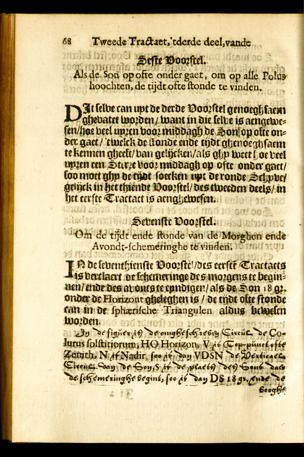 68 Tweede Tractaet, 'tderde deel, vande
Seste Voorstel.
Als de Son op ofte onder gaet, om op alle Polus
hoochten, de tijdt ofte stonde te vinden.
DIt selve can upt de derde Voorstel genoeghsaem
ghevatet worden / want in die selve is aengewe-
sen / hoe veel upren voor middagh de Son op ofte on-
der gaet / 'twelck de stonde ende tijdt ghenoeghsaem
te kennen gheeft / dan gelijcken / als ghy weet / hoe veel
upren een Sterre voor middagh op ofte onder gaet /
soo moet ghy de tijdt soecken upt de ronde Schyve /
gelijck in het thiende Voorstel / des tweeden deels / in
het eerste Tractaet is aenghewesen.
Sevenste Voorstel.
Om de tijdt ende stonde van de Morghen ende
Avondt-schemeringhe te vinden.
IN de seventhiende Voorstel / des eerste Tractaets
is verclaert de schemeringe des morgens te begin-
nen / ende des avonts te eyndigen / als de Son 18 gr.
onder de Horizont gheleghen is / de tijdt ofte stonde
can in de sphærische Triangulen aldus bewesen
worden.
In de figuer, is de Circul de Co-
lurus solstitiorum, HO Horizon, V is Top-punct ofte
Zenith, N is Nadir, soo is van VDSN de Verticael
Circul, S is de plaets des Sons als
de schemeringhe begint, soo is dan DS 18 gr. ende de
booghe